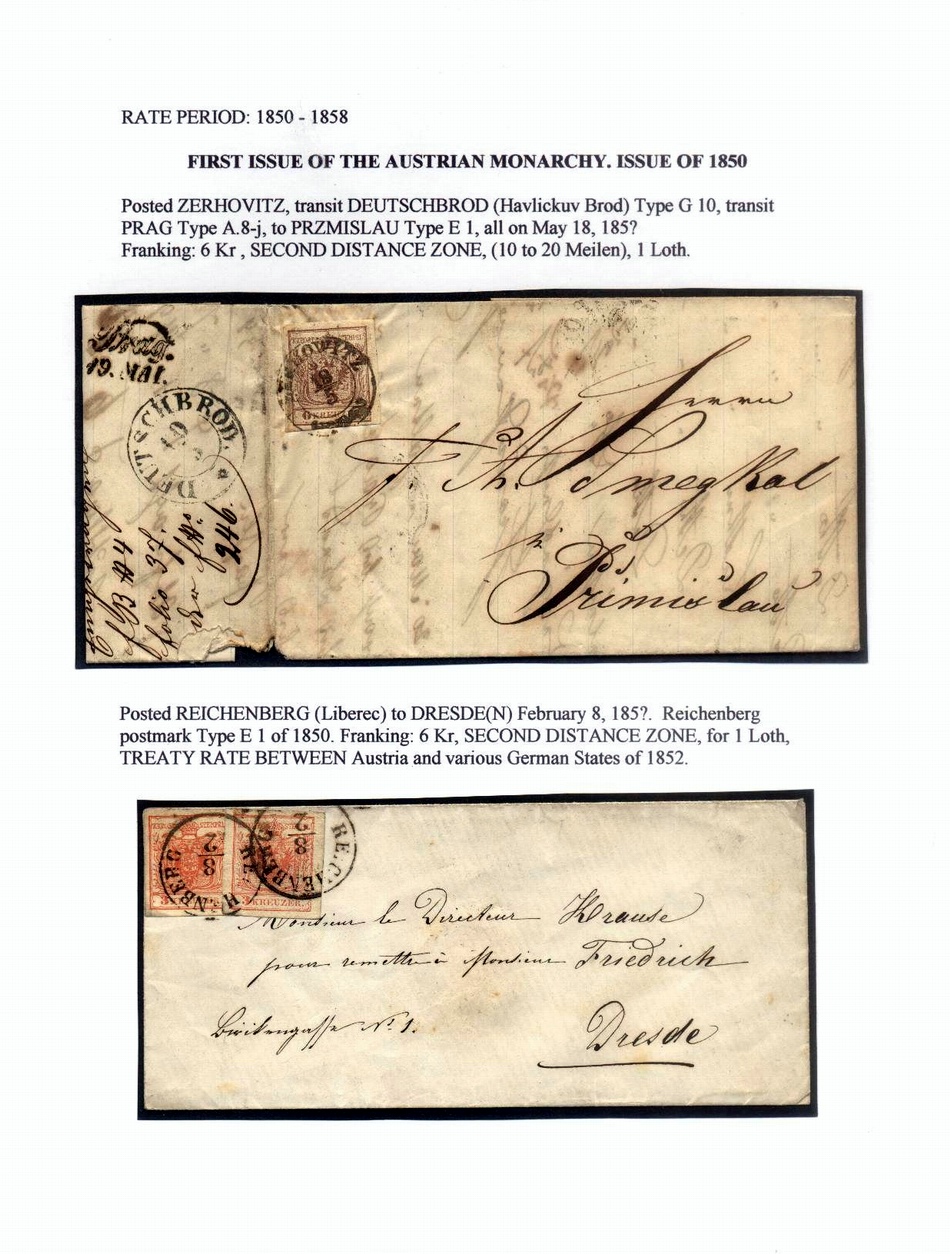 RATE PERIOD: 1850 - 1858
FIRST ISSUE OF THE AUSTRIAN MONARCHY. ISSUE OF 1850
Posted ZERHOVITZ, transit DEUTSCHBROD (Havlickuv Brod) Type G 10, transit
PRAG Type A.8-j, to PRZMISLAU Type E 1, all on May 18, 185?
Franking: 6 Kr , SECOND DISTANCE ZONE, (10 to 20 Meilen), 1 Loth.
Prag.
19. MAI.
DEUTSCHBROD.
HOWITZ
6 KREUZ
Herrn
in
folio 37.
der
246.
Posted REICHENBERG (Liberec) to DRESDE(N) February 8, 185?. Reichenberg
postmark Type E 1 of 1850. Franking: 6 Kr, SECOND DISTANCE ZONE, for 1 Loth,
TREATY RATE BETWEEN Austria and various German States of 1852.
8
2
REICHENBERG
8
2
KREUZER
Monsieur le Directeur Krause
pour remettre à Monsieur Friedrich
No 1.
Dresde